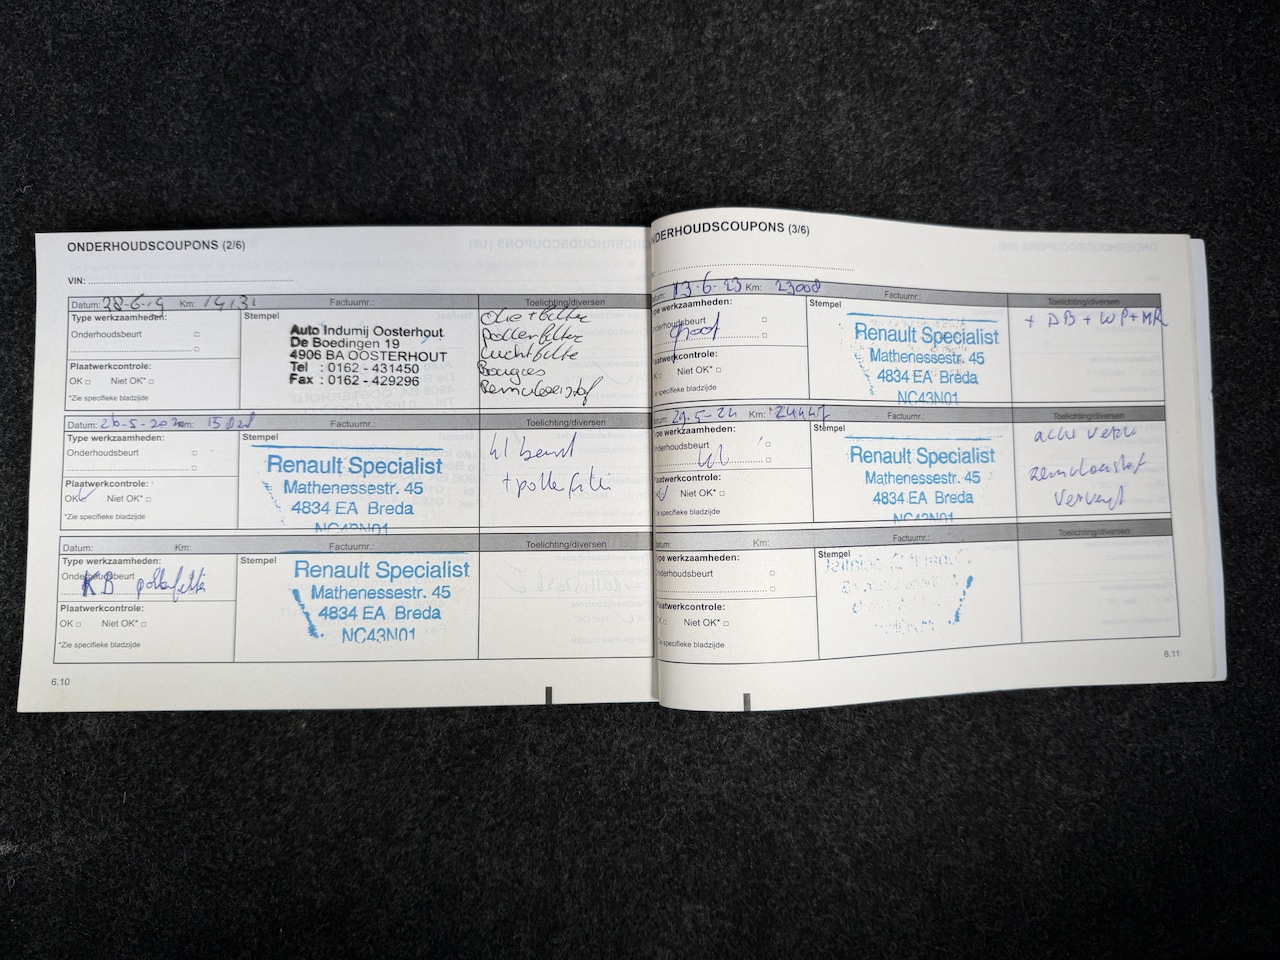 ONDERHOUDSCOUPONS (2/6)
VIN:
Datum: 28-6-19 Km: 14131 Factuurnr.: Toelichting/diversen
Type werkzaamheden:
Onderhoudsbeurt
Plaatwerkcontrole:
OK Niet OK*
*Zie specifieke bladzijde
Stempel
Auto Indumij Oosterhout
De Boedingen 19
4906 BA OOSTERHOUT
Tel : 0162 - 431450
Fax : 0162 - 429296
Olie + filter
pollenfilter
Luchtfilter
Bougies
Remvloeistof
Datum: 26-5-20 Km: Factuurnr.: Toelichting/diversen
Type werkzaamheden:
Onderhoudsbeurt
Plaatwerkcontrole:
OK Niet OK*
*Zie specifieke bladzijde
Stempel
Renault Specialist
Mathenessestr. 45
4834 EA Breda
NC43N01
kl beurt
+ pollenfilter
Datum: Km: Factuurnr.: Toelichting/diversen
Type werkzaamheden:
Onderhoudsbeurt
KB pollenfilter
Plaatwerkcontrole:
OK Niet OK*
*Zie specifieke bladzijde
Stempel
Renault Specialist
Mathenessestr. 45
4834 EA Breda
NC43N01
6.10
NDERHOUDSCOUPONS (3/6)
atum: 13-6-23 Km: 23008 Factuurnr.: Toelichting/diversen
ype werkzaamheden:
nderhoudsbeurt
groot
Plaatwerkcontrole:
Niet OK*
Zie specifieke bladzijde
Stempel
Renault Specialist
Mathenessestr. 45
4834 EA Breda
NC43N01
+ DB + WP + MR
atum: 29-5-24 Km: 24447 Factuurnr.: Toelichting/diversen
ype werkzaamheden:
nderhoudsbeurt
kl
Plaatwerkcontrole:
Niet OK*
Zie specifieke bladzijde
Stempel
Renault Specialist
Mathenessestr. 45
4834 EA Breda
NC43N01
remvloeistof
ververst
atum: Km: Factuurnr.: Toelichting/diversen
Type werkzaamheden:
Onderhoudsbeurt
Plaatwerkcontrole:
OK Niet OK*
Zie specifieke bladzijde
Stempel
6.11